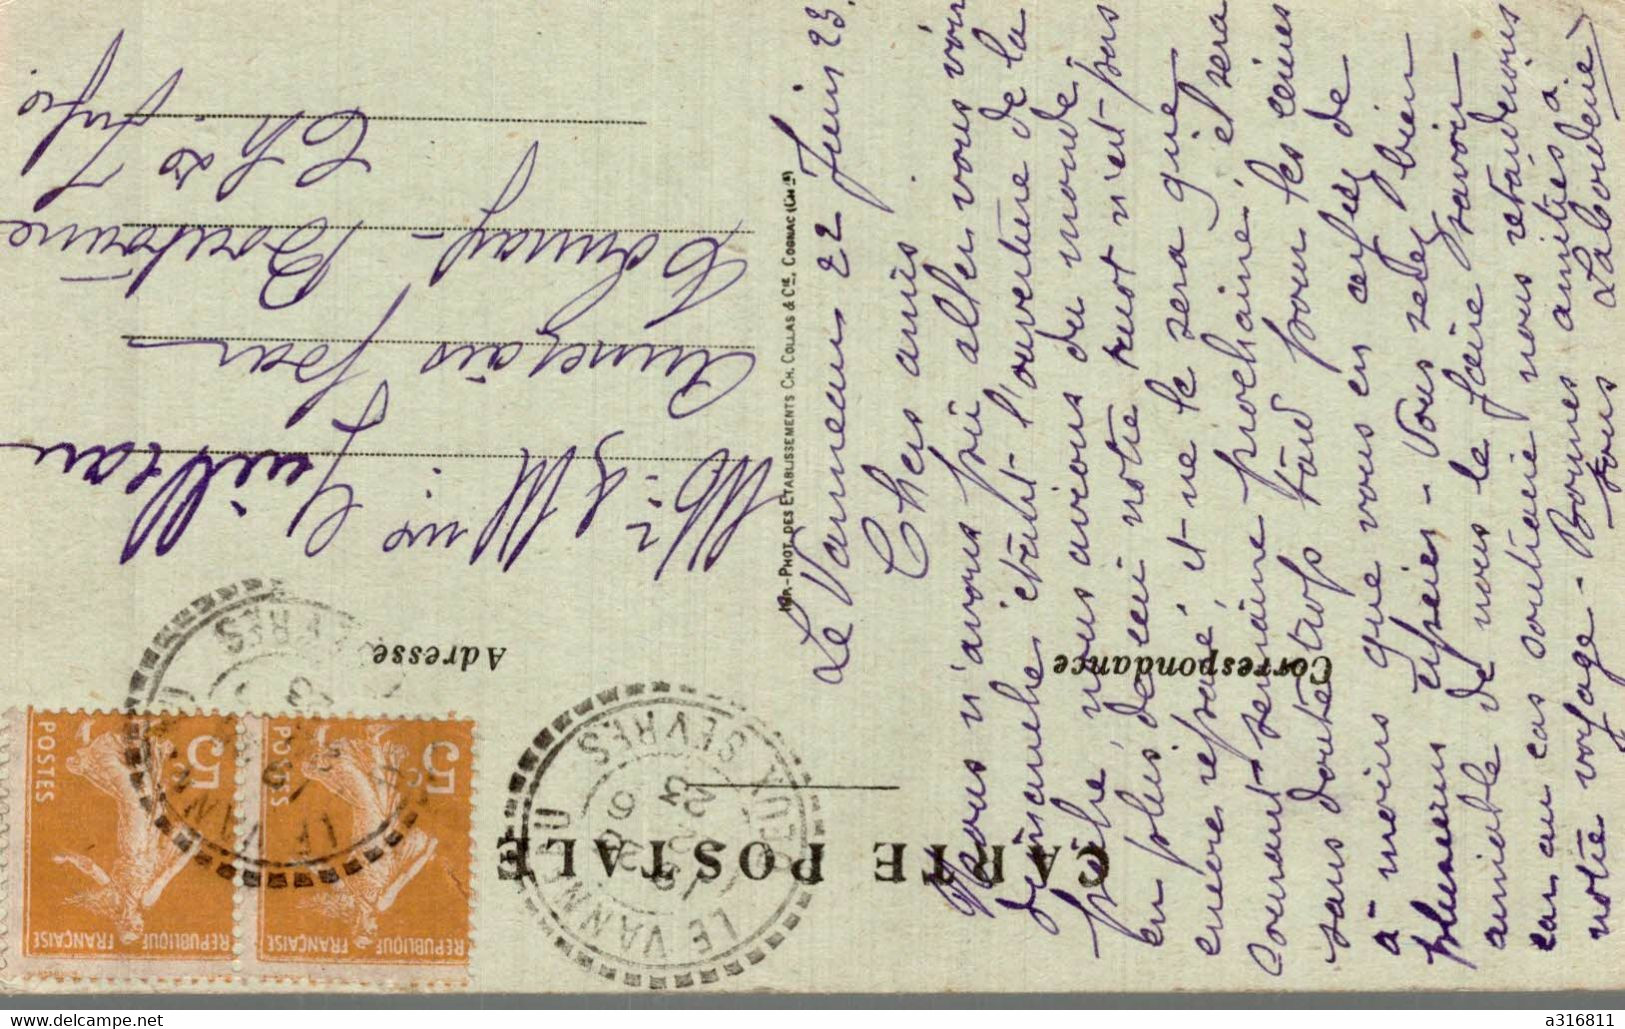 CARTE POSTALE
Correspondance
Adresse
Le Vanneau 22 Juin 23.
Chers amis.
Nous n'avons pu aller vous voir
dimanche étant l'ouverture de la
pêche, nous avions du monde
en plus de ceci notre auto n'est pas
encore réparé, et ne le sera que
courant semaine prochaine, il sera
sans doute trop tard pour les cerises
à moins que vous en ayiez de
plusieurs espèces - Vous serez bien
aimable de nous le faire savoir
car au cas contraire nous retarderions
notre voyage - Bonnes amitiés à
tous Labouderie
Mr & Mme Guilleau
Amerais par
Tonnay-Boutonne
Ch. Infre.
IMP.-PHOT. DES ETABLISSEMENTS CH. COLLAS & CIE, COGNAC
LE VANNEAU
DEUX SEVRES
23
6
23
LE VANNEAU
SEVRES
REPUBLIQUE FRANÇAISE
5c
POSTES
REPUBLIQUE FRANÇAISE
5c
POSTES
www.delcampe.net
a316811